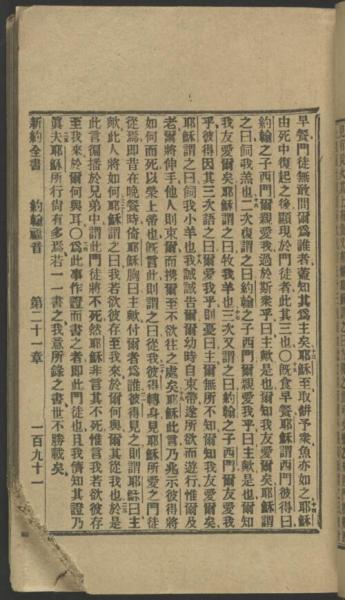 早餐門徒無敢問爾爲誰者蓋知其爲主矣耶穌至取餅予衆魚亦如之耶穌
由死中復起之後顯現於門徒者此其三也〇旣食早餐耶穌謂西門彼得曰
約翰之子西門爾親愛我過於斯衆乎曰主歟是也爾知我友愛爾矣耶穌謂
之曰飼我羔也二次復謂之曰約翰之子西門爾親愛我乎曰主歟是也爾知
我友愛爾矣耶穌謂之曰牧我羊也三次又謂之曰約翰之子西門爾友愛我
乎彼得因其三次語之曰爾愛我乎則憂曰主爾無所不知爾知我友愛爾矣
耶穌謂之曰飼我小羊也我誠誠告爾爾幼時自束帶遂所欲而遊行惟爾及
老爾將伸手他人則束爾而攜爾至不欲往之處矣耶穌此言乃兆示彼得將
如何而死以榮上帝也旣言此則謂之曰從我彼得轉身見耶穌所愛之門徒
從焉卽昔在晚餐時倚耶穌胸曰主歟付爾者爲誰彼得見之則謂耶穌曰主
歟此人將如何耶穌謂之曰我若欲彼存至我來於爾何與爾其從我也於是
此言復播於兄弟中謂此門徒將不死然耶穌非言其不死惟言我若欲彼存
至我來於爾何與耳〇爲此事作證而書之者卽此門徒也且我儕知其證乃
眞夫耶穌所行尙有多焉若一一書之我意所錄之書世不勝載矣
新約全書 約翰福音 第二十一章 一百九十一